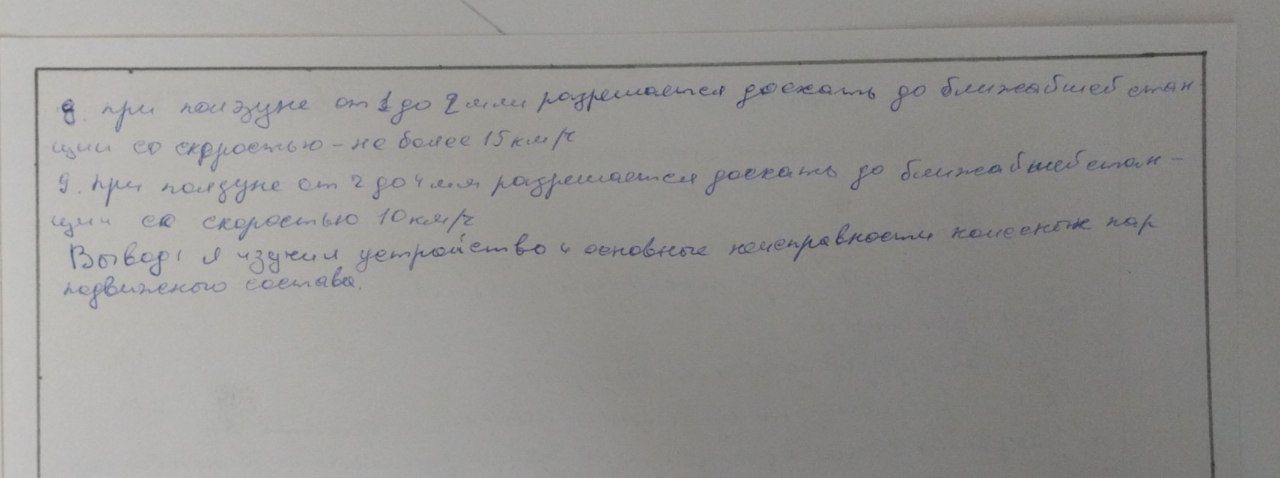 8. при ползуне от 1 до 2 мм разрешается доехать до ближайшей стан
ции со скоростью - не более 15 км/ч
9. при ползуне от 2 до 4 мм разрешается доехать до ближайшей стан-
ции со скоростью 10 км/ч
Вывод: я изучил устройство и основные неисправности колесных пар
подвижного состава.